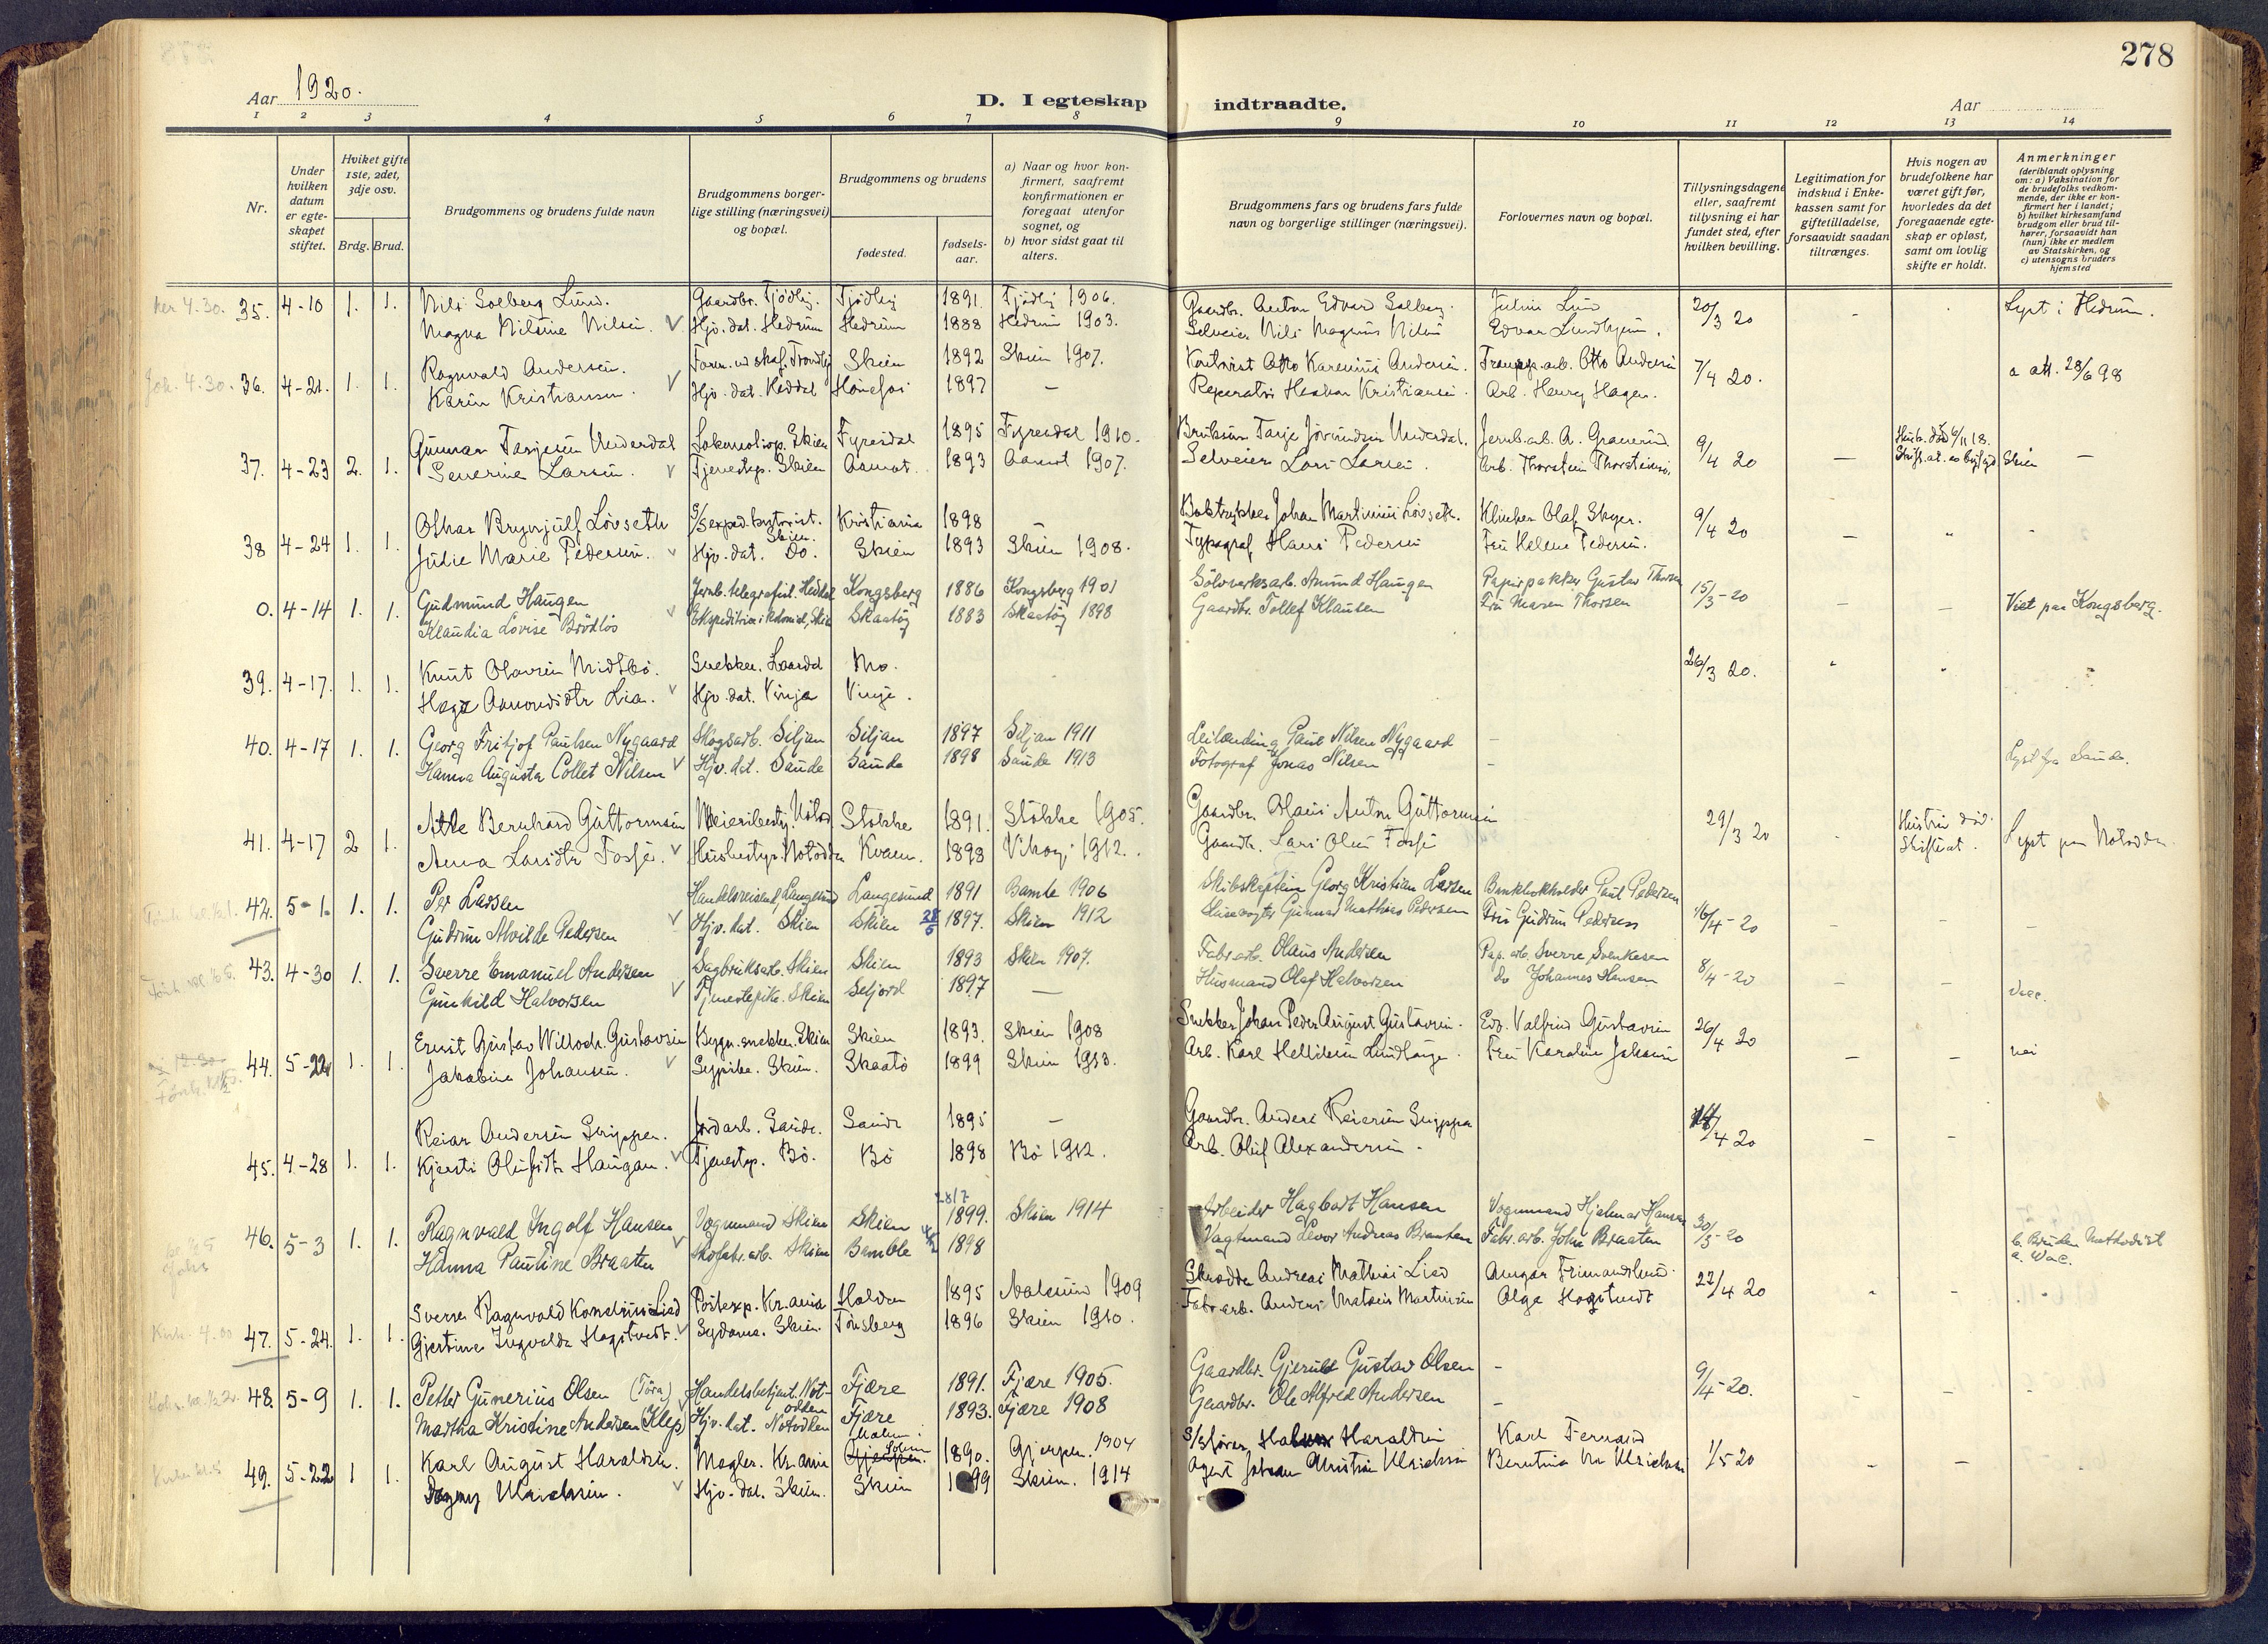 278
Aar 1920.
D. I egteskap indtraadte.
Aar
1 2 3 4 5 6 7 8 9 10 11 12 13 14
Nr.
Under hvilken datum er egteskapet stiftet.
Hviket gifte 1ste, 2det, 3dje osv.
Brdg. Brud.
Brudgommens og brudens fulde navn
Brudgommens borgerlige stilling (næringsvei) og bopæl.
Brudgommens og brudens
fødested.
fødselsaar.
a) Naar og hvor konfirmert, saafremt konfirmationen er foregaat utenfor sognet, og
b) hvor sidst gaat til alters.
Brudgommens fars og brudens fars fulde navn og borgerlige stillinger (næringsvei).
Forlovernes navn og bopæl.
Tillysningsdagene eller, saafremt tillysning ei har fundet sted, efter hvilken bevilling.
Legitimation for indskud i Enkekassen samt for giftetilladelse, forsaavidt saadan tiltrænges.
Hvis nogen av brudefolkene har været gift før, hvorledes da det foregaaende egteskap er opløst, samt om lovlig skifte er holdt.
Anmerkninger (deriblandt oplysning om: a) Vaksination for de brudefolks vedkommende, der ikke er konfirmert her i landet; b) hvilket kirkesamfund brudgom eller brud tilhører, forsaavidt han (hun) ikke er medlem av Statskirken, og c) utensogns bruders hjemsted
35. 4-10 1. 1. Nils Solberg Lund. Gaardbr. Tjødling. Tjødling 1891. Tjødling 1906. Gaardbr. Anton Edvard Solberg. Julius Lund 20/3 20 - Lyst i Hedrum.
Magna Nilsine Nilsen. Hjv. dat. Hedrum Hedrum 1888 Hedrum 1903. Selveier Nils Magnus Nilsen Edvar Lundhjem.
36. 4-21. 1. 1. Ragnvald Andersen. Skien 1892 Skien 1907. Otto Karenius Andersen. Otto Andersen 7/4 20. a att. 28/6 98
Karin Kristiansen. Hjv. dat. Heddal Hønefos 1897 - Reperatør Haakon Kristiansen. Arb. Henry Hagen.
37. 4-23 2. 1. Gunnar Tarjesen Underdal Lokomotivp. Skien Fyresdal 1895 Fyresdal 1910. Tarje Jørundsen Underdal. Jernb.arb. A. Graverud 9/4 20 - Hust. død 6/11 18. Skien -
Severine Larsen. Tjenestep. Skien Aamot. 1893 Aamot 1907. Selveier Lars Larsen. Arb. Thorstein Thorsteinsen
38 4-24 1. 1. Othar Brynjulf Løvseth S/S exped. Skien. Kristiania 1898 - Boktrykker Johan Martinius Løvseth. Klinker Olaf Skyer. 9/4 20 -
Julie Marie Pedersen. Hjv. dat. Do. Skien 1893 Skien 1908. Typograf Hans Pedersen Fru Helene Pedersen.
0. 4-14 1. 1. Gudmund Haugen Jernb. telegrafist. Heddal Kongsberg 1886 Kongsberg 1901 Sølvverksarb. Amund Haugen Papirpakker Gustav Thorsen 15/3-20 - - Viet paa Kongsberg.
Klaudia Lovise Brødløs Ekspeditrice i kolonial, Skien Skaatøy 1883 Skaatøy 1898 Gaardbr. Tollef Klausen Fru Maren Thorsen
39. 4-17. 1. 1. Knut Olavsen Midtbø. Snekker. Laardal Mo. 26/3 20.
Hæge Aamondsdtr Lia. Hjv. dat. Vinje Vinje.
40. 4-17 1. 1. Georg Fritjof Paulsen Nygaard Skogsarb. Siljan Siljan 1897 Siljan 1911 Leilænding Paul Nilsen Nygaard -
Hanna Augusta Collet Nilsen Hjv. dat. Saude Saude 1898 Saude 1913 Fotograf Jonas Nilsen - Lyst fra Saude.
41. 4-17 2 1. Atle Bernhard Guttormsen Stokke 1891. Stokke 1905. Gaardbr. Hans Anton Guttormsen 29/3 20 Hustru død. Skifte at. Lyst paa Notodden
Anna Larsdtr Fosse. Husbestyr. Notodden Kvam. 1898 1912. Gaardbr. Lars Olsen Fosse
42. 5-1. 1. 1. Per Larsen Handelsreisend, Langesund Langesund 1891 Bamle 1906 Skibskaptein Georg Kristian Larsen Bankbokholder Paul Pedersen 16/4-20 - - -
Gudrun Alvilde Pedersen Hjv. dat. Skien Skien 28/5 1897. Skien 1912 Slusevogter Gunnar Mathias Pedersen Fru Gudrun Pedersen
43. 4-30 1. 1. Sverre Emanuel Andersen Sagbruksarb. Skien Skien 1893 Skien 1907. Fabr.arb. Olaus Andersen Pap. arb. Sverre Svenkesen 8/4-20 - - Vacc.
Gunhild Halvorsen Tjenestepike. Skien Seljord 1897 - Husmand Olaf Halvorsen do Johannes Hansen
44. 5-22 1. 1 Ernst Gustav Willoch. Gustavsen Bygn. snekker. Skien Skien 1893. Skien 1908 Snekker Johan Peder August Gustavsen. Edv. Valfrid Gustavsen 26/4 20 - - nei
Jakobine Johansen. Sypike. Skien. Skaatø 1899 Skien 1913. Arb. Karl Hellik Lundtange. Fru Karoline Johansen
45. 4-28 1. 1. Reiar Andersen Grippen. Jordarb. Saude. Saude 1895 - Gaardbr. Anders Reiersen Grippen 14/4 20 - -
Kjersti Olufsdtr Haugan. Tjenestep. Bø. Bø 1898 Bø 1912. Arb. Oluf Alexandersen.
28/7
46. 5-3 1. 1. Ragnvald Ingolf Hansen Vognmand Skien Skien 1899. Skien 1914 Arbeider Hagbart Hansen Vognmand Hjalmar Hansen 30/3-20
Hanna Pauline Braaten Skofabr.arb. Skien Bamble 1898 Vagtmand Levor Andreas Braaten Fabr. arb. John Braaten b. Bruden Methodist
a. Vac.
47. 5-24. 1. 1. Sverre Ragnvald Konstins Lied Postexp. Kr.ania Halden 1895 Aalesund 1909 Skrædder Andreas Mathias Lied Ansgar Frimandslund. 22/4 20
Gjertine Ingvalda Hagtvedt. Sydame. Skien. Tønsberg 1896 Skien 1910. Fabr.arb. Anders Mathias Martinsen Olga Hagtvedt
48. 5-9 1. 1. Petter Gunerius Olsen (Töra) Handelsbetjent. Notodden Fjære 1891. Fjære 1905. Gaardbr. Gjeruld Gustav Olsen - 9/4-20.
Martha Kristine Andersen (Klep) Hjv. dat. Notodden Fjære 1893. Fjære 1908 Gaardbr. Ole Alfred Andersen -
49. 5-22 1 1. Karl August Haraldsen. Mægler. Kr.ania Gjerpen. Solum 1890. Gjerpen. 1904 S/S fører Haraldsen Karl Fernand 1/5 20 - -
Dagny Ulrichsen. Hjv. dat. Skien. Skien 1899 Skien. 1914 Agent Johan Christian Ulrichsen Berntine Ulrichsen